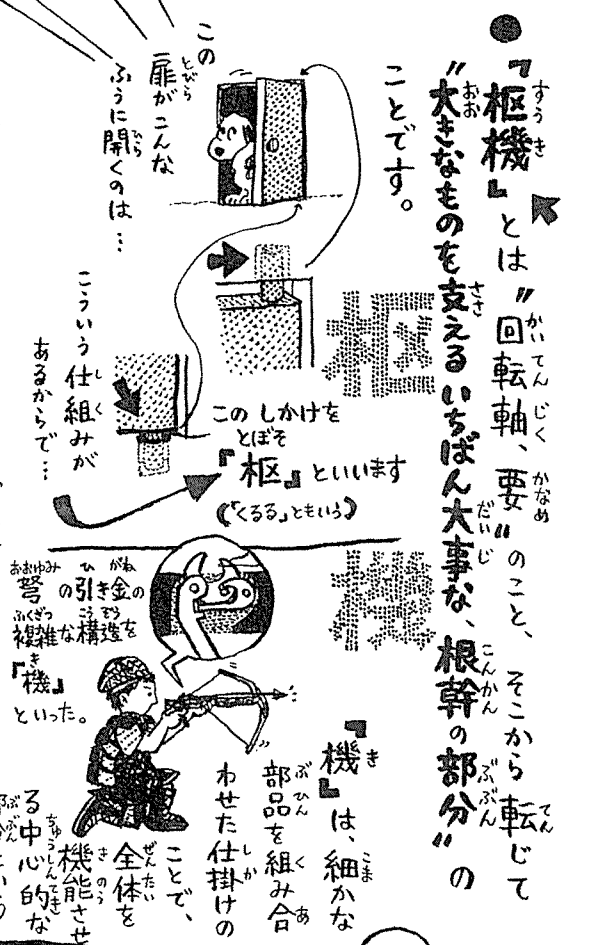 ●『枢機』とは〝回転軸、要〟のこと、そこから転じて
〝大きなものを支えるいちばん大事な、根幹の部分〟の
ことです。
この
扉がこんな
ふうに開くのは…
こういう仕組みが
あるからで…
枢
このしかけを
『枢』といいます
(「くるる」ともいう)
機
弩の引き金の
複雑な構造を
『機』
といった。
『機』は、細かな
部品を組み合
わせた仕掛けの
ことで、
全体を
機能させ
る中心的な